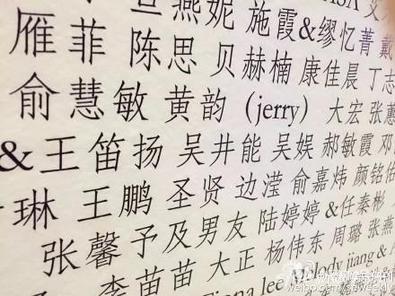 燕妮 施霞&缪忆菁 戴
雁菲 陈思 贝赫楠 康佳晨 丁志
俞慧敏 黄韵 (jerry) 大宏 张蕙
&王笛扬 吴井能 吴娱 郝敏霞 邓
琳 王鹏 圣贤 边滢 俞嘉炜 颜铭佑
张馨予及男友 陆婷婷&任秦彬
李苗苗 大正 杨伟东 周璐 张燕
Fiona lee jiang &